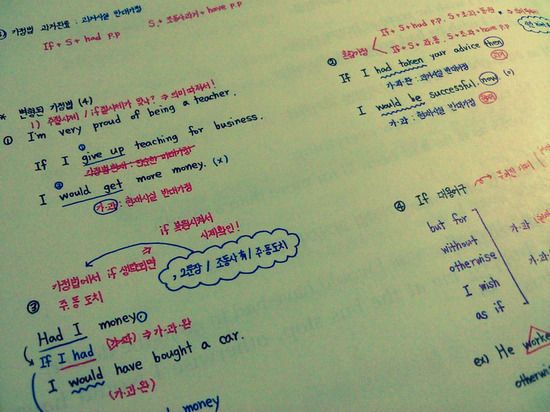 가정법 과거완료 : 과거사실 반대가정
If + S + had p.p S + 조동사과거 + have p.p
* 변형된 가정법 (4)
1) 주절시제 / if절시제가 맞나? → 의미따져서!
① I'm very proud of being a teacher.
If I give up teaching for business.
I would get more money. (x)
가.과 : 현재사실 반대가정
if 복원시켜서
시제확인!
가정법에서 if 생략되면
주.동 도치
, 2문장 / 조동사 有 / 주.동도치
③
Had I money,
If I had (가.과) ⇒ 가.과.완
I would have bought a car.
(가.과.완)
money
혼합가정법
If + S + had p.p, S + 조.과 + 동.원
If + S + 과.동, S + 조.과 + have p.p
②
If I had taken your advice then
가.과.완 : 과거사실 반대가정
과거
I would be successful now (o)
가.과 : 현재사실 반대가정
현재
④ If 대용어구
but for
without
otherwise
I wish
as if
가.과
가.과
ex) He worke
otherwis